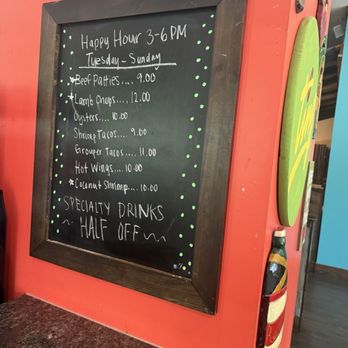 Happy Hour 3-6 PM
Tuesday - Sunday
*Beef Patties... 9.00
*Lamb Chops.... 12.00
Oysters.... 10.00
Shrimp Tacos... 9.00
Grouper Tacos... 11.00
Hot Wings.... 10.00
*Coconut Shrimp... 10.00
SPECIALTY DRINKS
~ HALF OFF ~